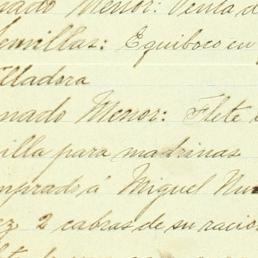 nado Menor: Venta d
Semillas: Equiboco en
illadora
anado Menor: Flete
villa para madrinas
mprado á Miguel Nu
ez 2 cabras de su racion